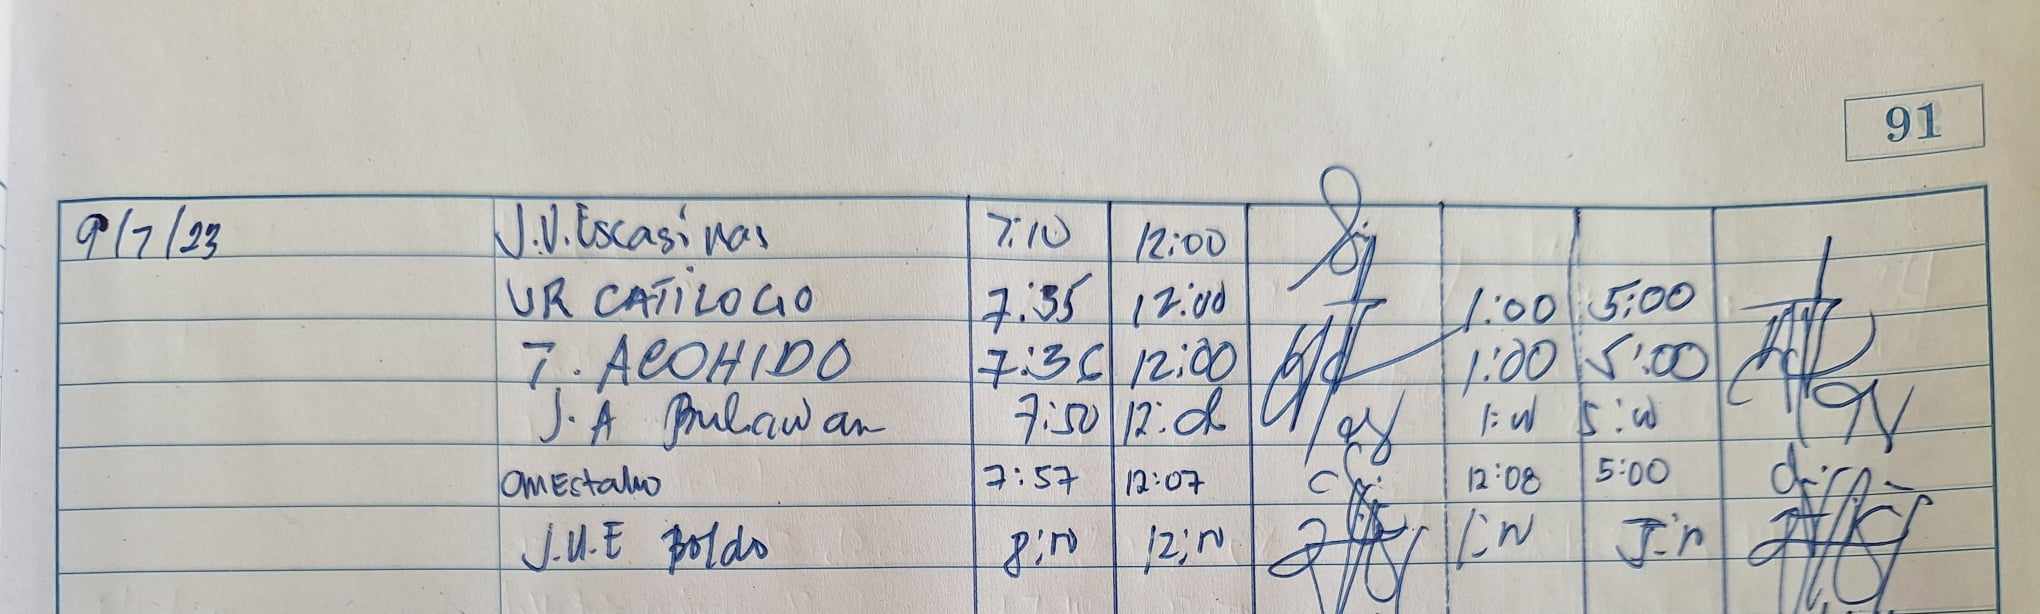 91
9/7/23 J.V. Escasinas 7:10 12:00
VR CATILOGO 7:35 12:00 1:00 5:00
T. ACOHIDO 7:36 12:00 1:00 5:00
J. A Bulawan 7:50 12:00 1:00 5:00
7:57 12:07 12:08 5:00
J.U.E Boldo